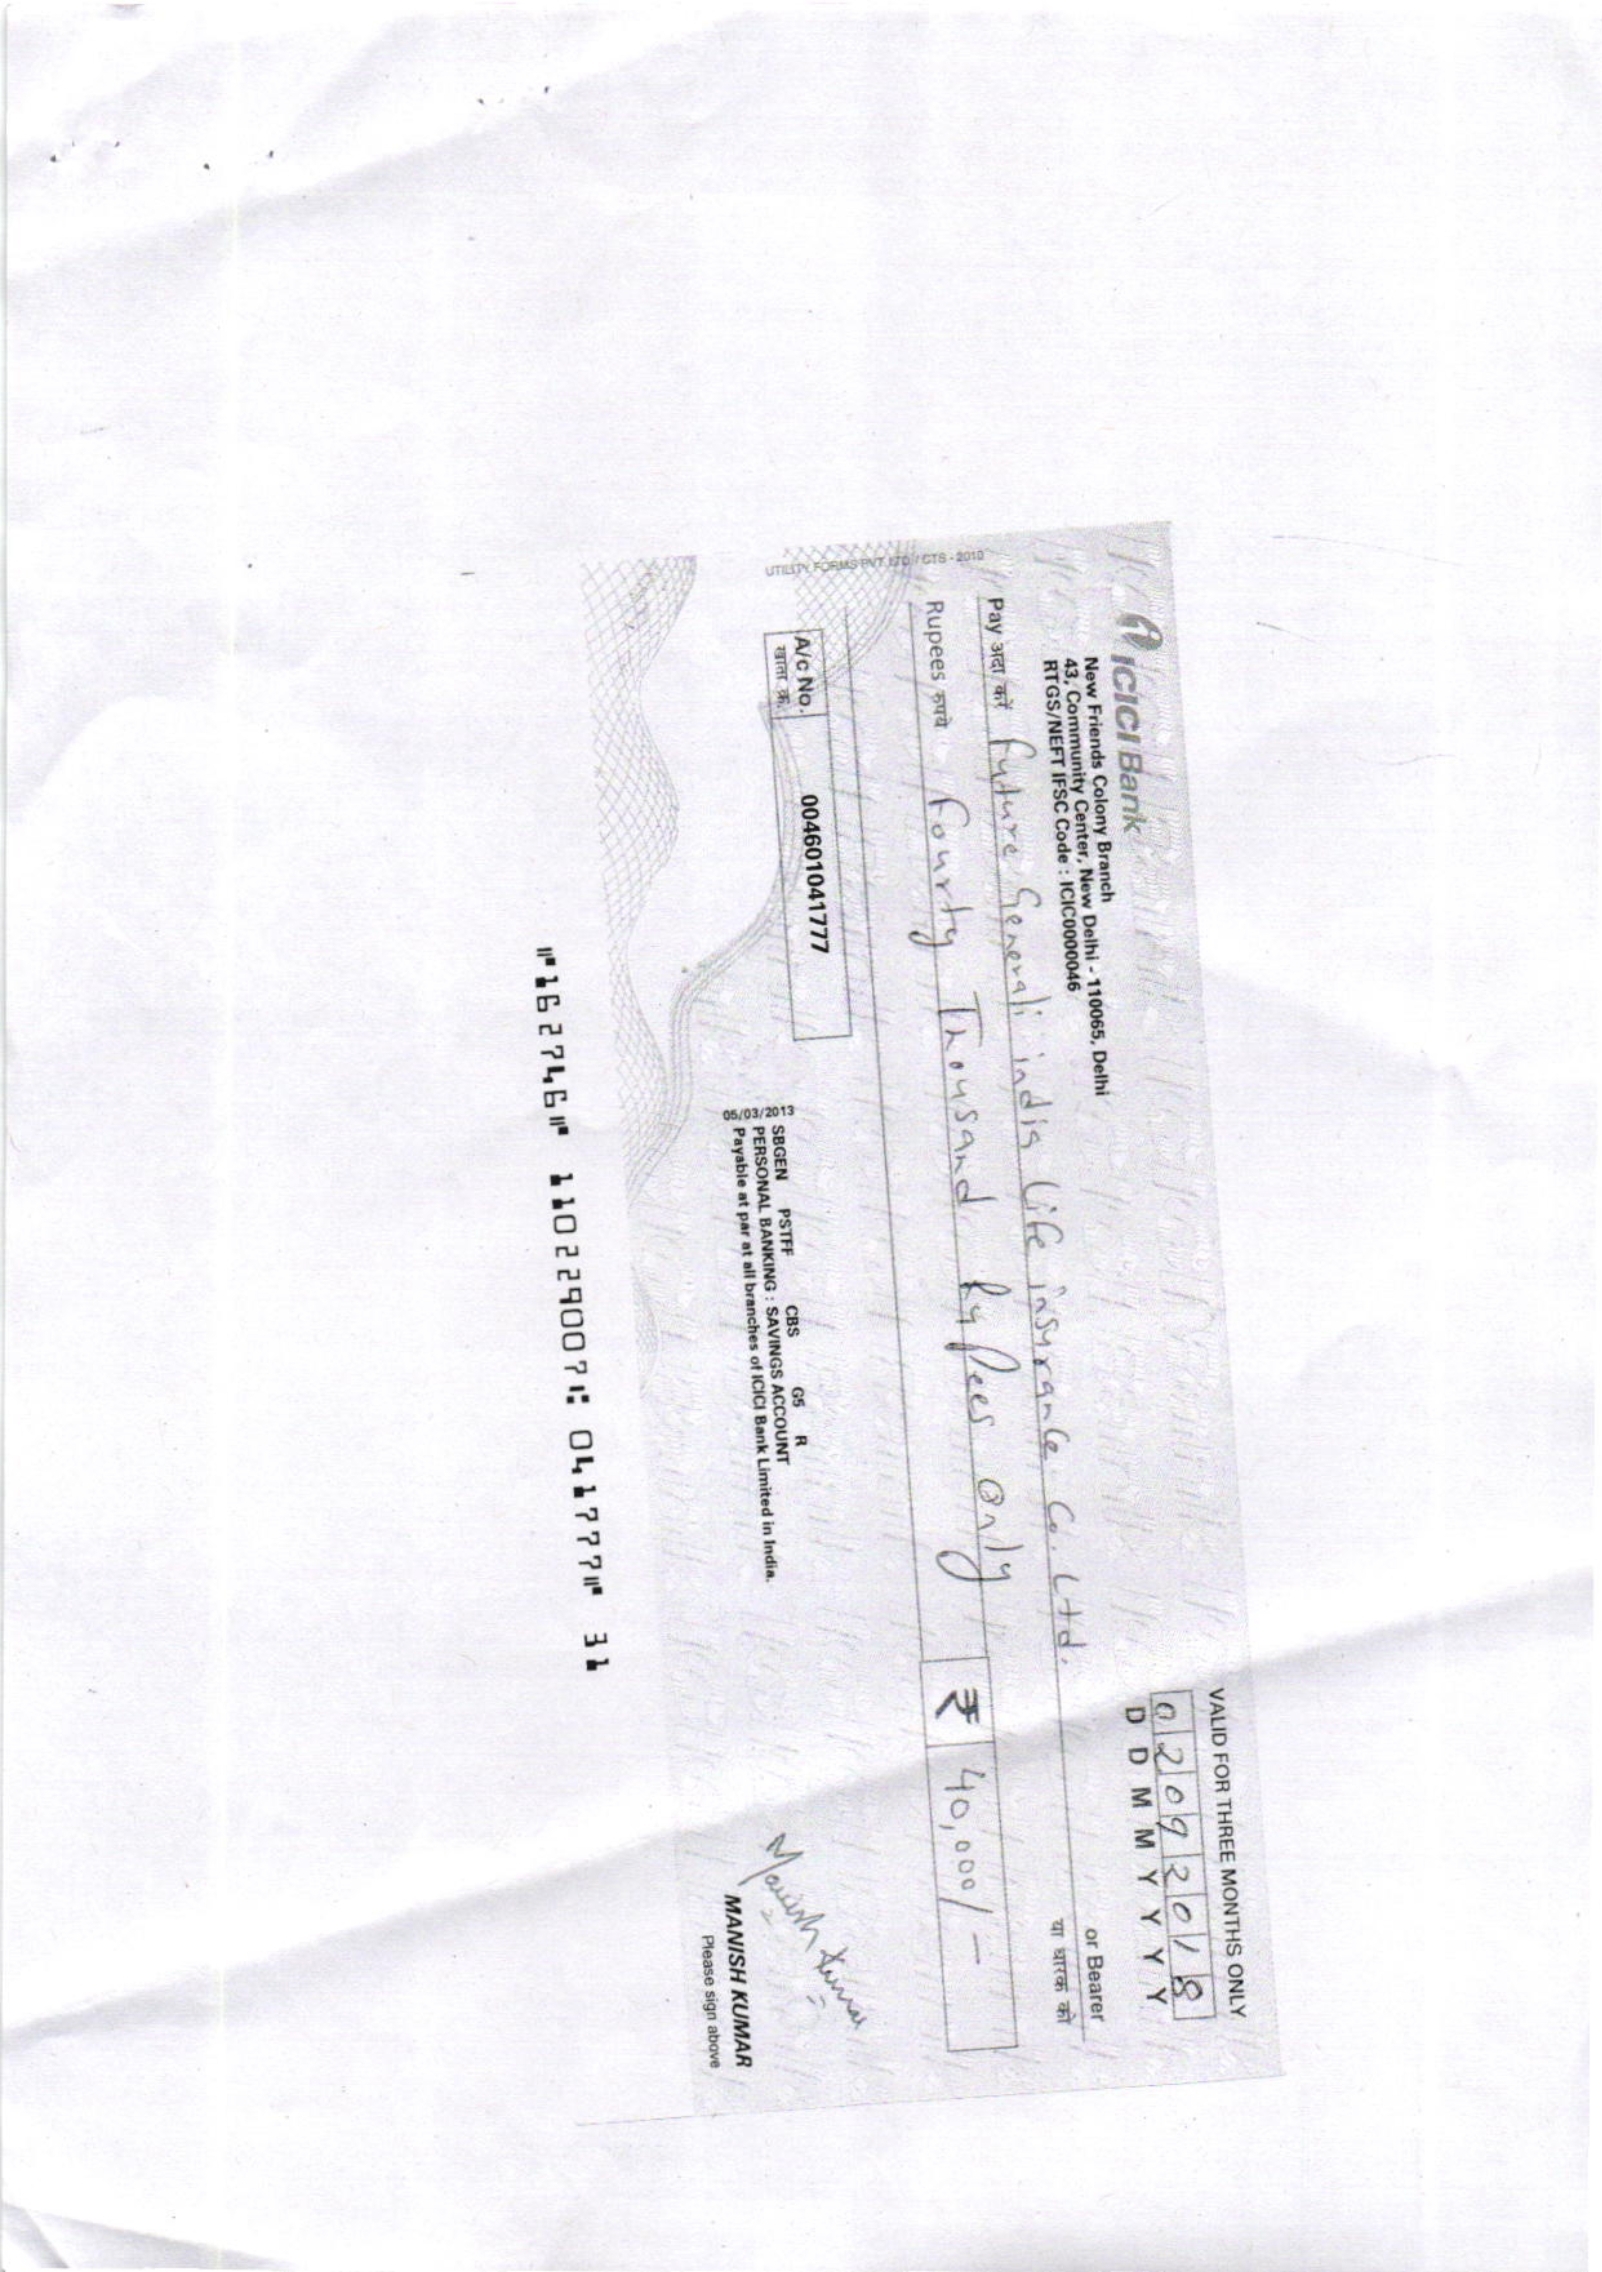 ICICI Bank
New Friends Colony Branch
43, Community Center, New Delhi - 110065, Delhi
RTGS/NEFT IFSC Code : ICIC0000046
VALID FOR THREE MONTHS ONLY
02092018
D D M M Y Y Y Y
Pay अदा करें Future Generali india life insurance Co. Ltd. or Bearer
या धारक को
Rupees रुपये Fourty Thousand Rupees only
₹ 40,000/-
A/c No. 004601041777
खाता क्र.
SBGEN PSTFF CBS G5 R
PERSONAL BANKING : SAVINGS ACCOUNT
05/03/2013 Payable at par at all branches of ICICI Bank Limited in India.
Manish Kumar
MANISH KUMAR
Please sign above
UTILITY FORMS PVT. LTD. / CTS - 2010
⑈162746⑈ 110229007⑆ 041777⑈ 31